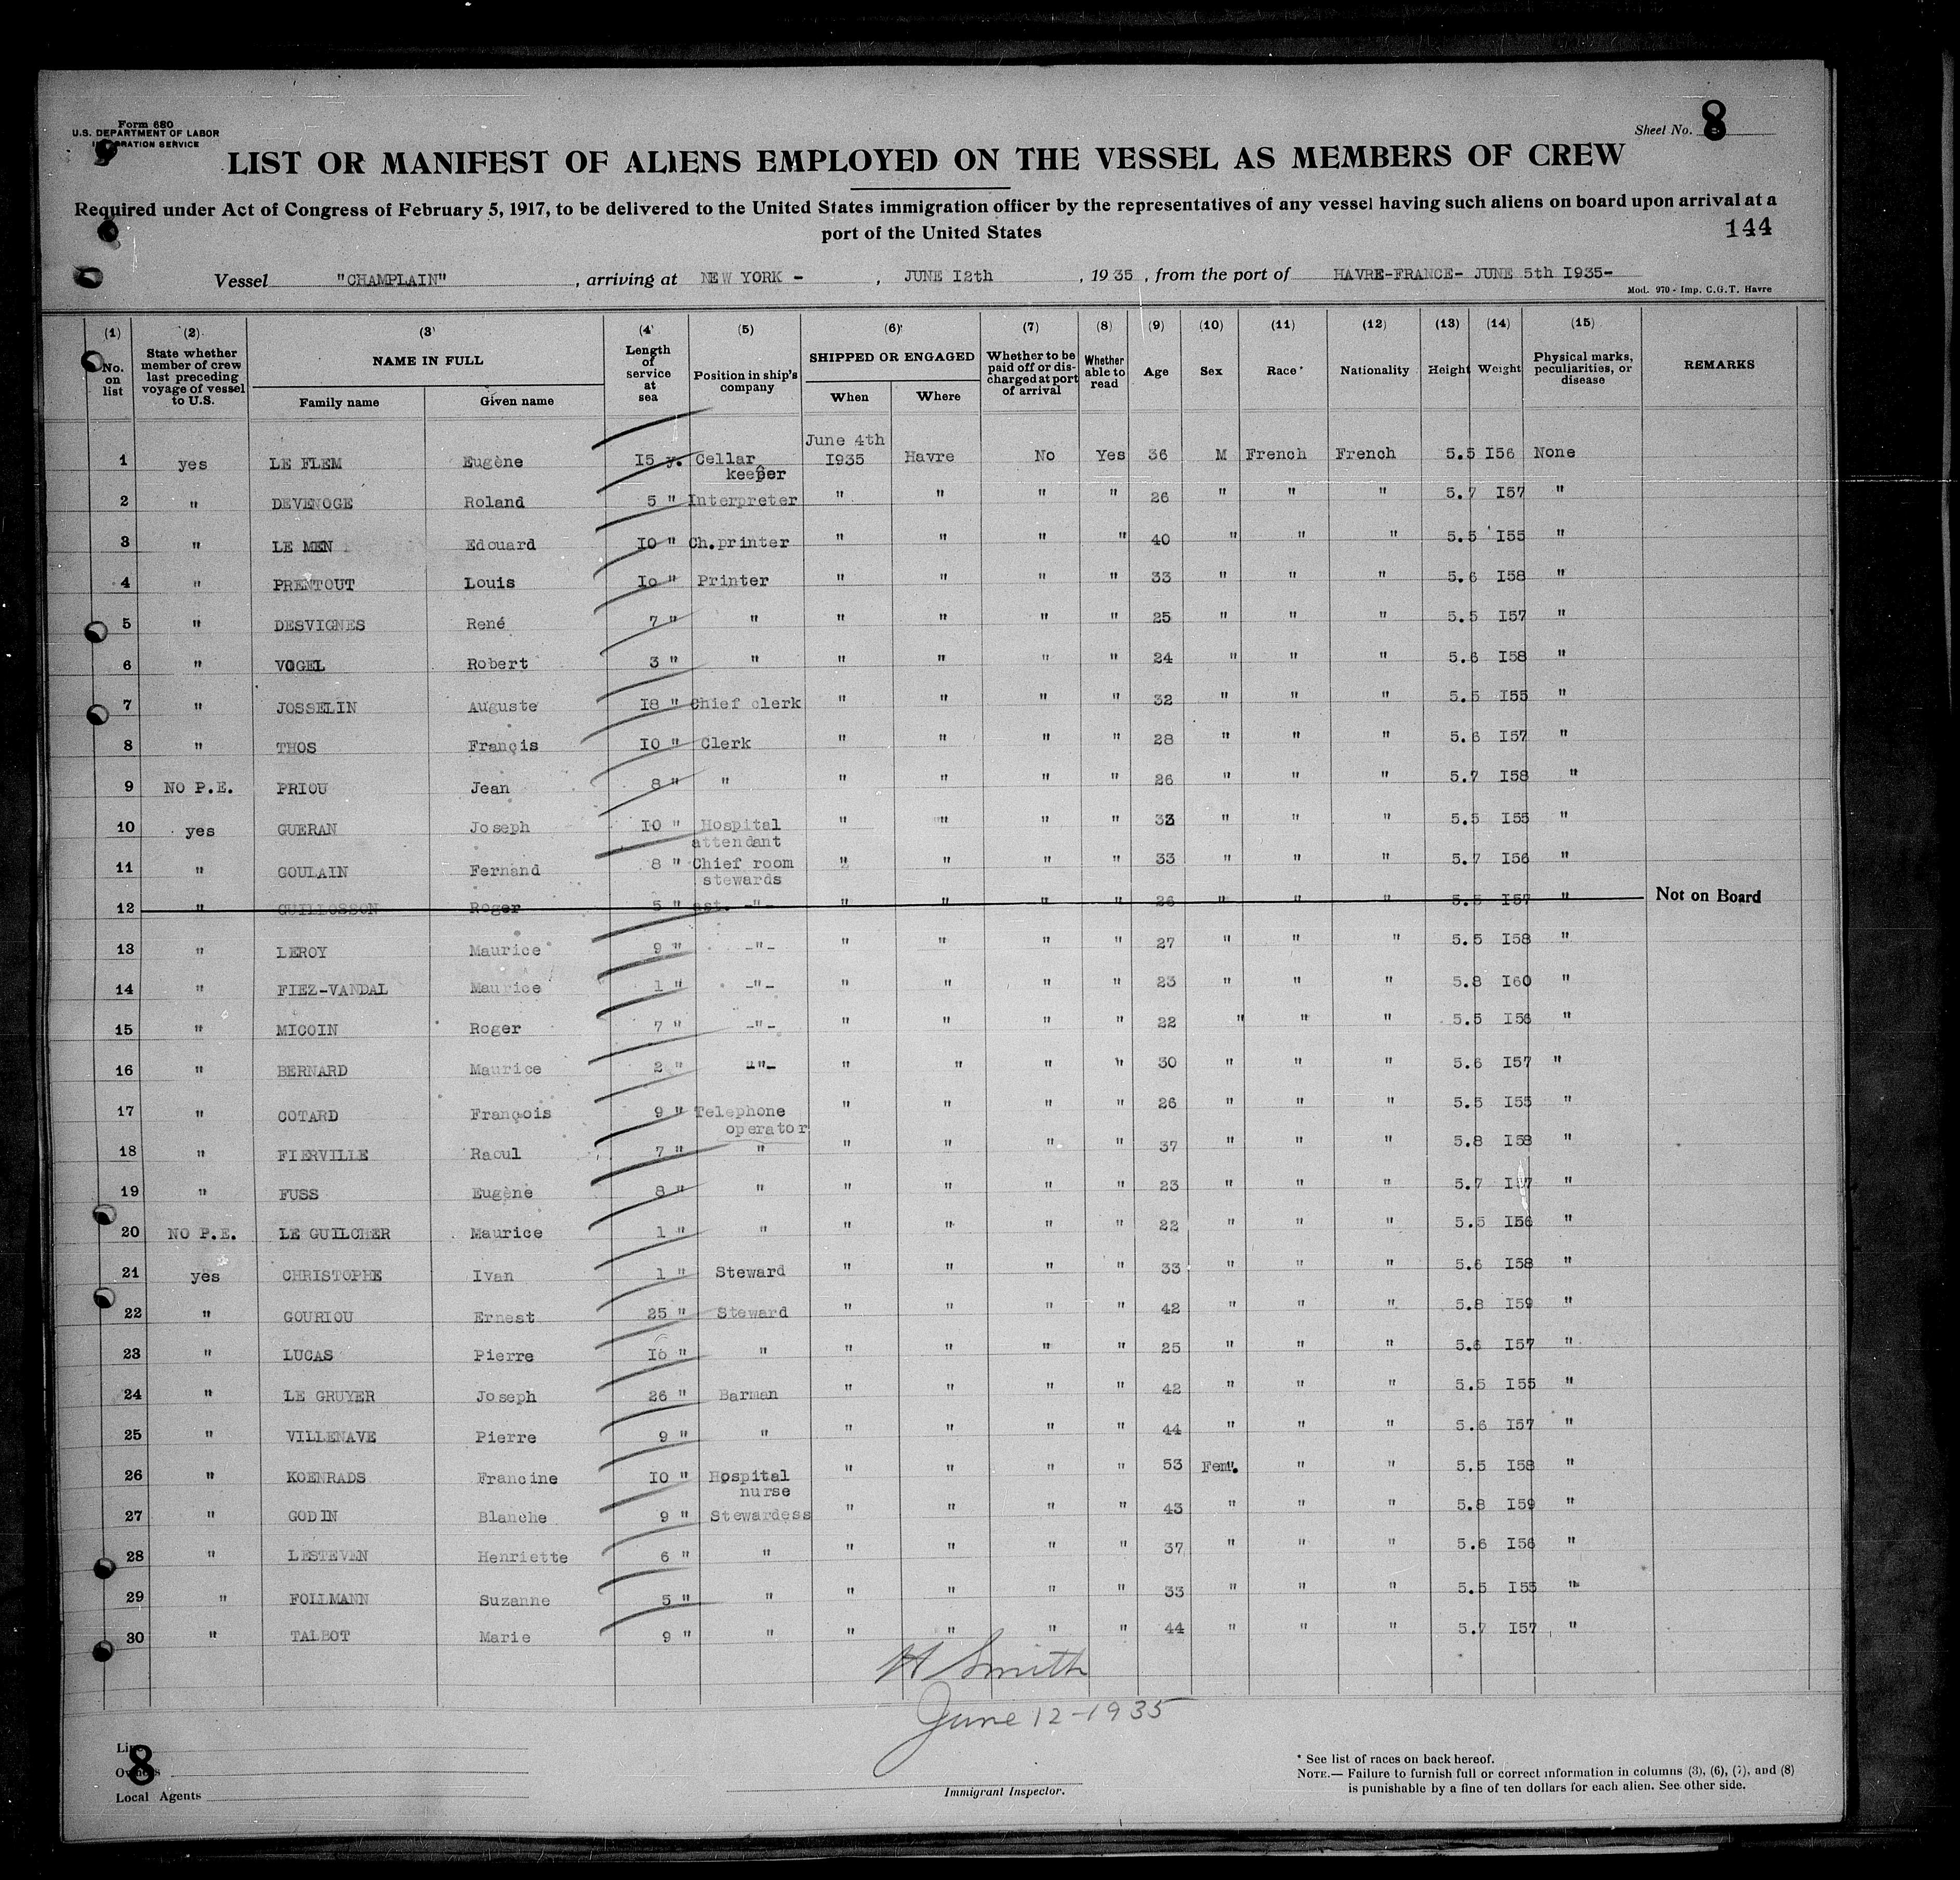 Form 680
U.S. DEPARTMENT OF LABOR
IMMIGRATION SERVICE
Sheet No. 8
LIST OR MANIFEST OF ALIENS EMPLOYED ON THE VESSEL AS MEMBERS OF CREW
Required under Act of Congress of February 5, 1917, to be delivered to the United States immigration officer by the representatives of any vessel having such aliens on board upon arrival at a
port of the United States
144
Vessel "CHAMPLAIN", arriving at NEW YORK - , JUNE I2th , 1935, from the port of HAVRE-FRANCE- JUNE 5th I935-
Mod. 970 - Imp. C.G.T. Havre
(1) (2) (3) (4) (5) (6) (7) (8) (9) (10) (11) (12) (13) (14) (15)
No. on list State whether member of crew last preceding voyage of vessel to U.S. NAME IN FULL Family name Given name Length of service at sea Position in ship's company SHIPPED OR ENGAGED When Where Whether to be paid off or discharged at port of arrival Whether able to read Age Sex Race* Nationality Height Weight Physical marks, peculiarities, or disease REMARKS
1 yes LE FLEM Eugène I5 y. Cellar keeper June 4th I935 Havre No Yes 36 M French French 5.5 I56 None
2 " DEVENOGE Roland 5 " Interpreter " " " " 26 " " " 5.7 I57 "
3 " LE MEN Edouard IO " Ch.printer " " " " 40 " " " 5.5 I55 "
4 " PRENTOUT Louis Io " Printer " " " " 33 " " " 5.6 I58 "
5 " DESVIGNES René 7 " " " " " " 25 " " " 5.5 I57 "
6 " VOGEL Robert 3 " " " " " " 24 " " " 5.6 I58 "
7 " JOSSELIN Auguste I8 " Chief clerk " " " " 32 " " " 5.5 I55 "
8 " THOS Françis IO " Clerk " " " " 28 " " " 5.6 I57 "
9 NO P.E. PRIOU Jean 8 " " " " " " 26 " " " 5.7 I58 "
10 yes GUERAN Joseph IO " Hospital attendant " " " " " " " 5.5 I55 "
11 " GOULAIN Fernand 8 " Chief room stewards " " " " 33 " " " 5.7 I56 "
12 " GUILLOSSON Roger 5 " ast. -"- " " " " 26 " " " 5.5 I57 " Not on Board
13 " LEROY Maurice 9 " -"- " " " " 27 " " " 5.5 I58 "
14 " FIEZ-VANDAL Maurice 1 " -"- " " " " 23 " " " 5.8 I60 "
15 " MICOIN Roger 7 " -"- " " " " 22 " " " 5.5 I56 "
16 " BERNARD Maurice 2 " -"- " " " " 30 " " " 5.6 I57 "
17 " COTARD François 9 " Telephone operator " " " " 26 " " " 5.5 I55 "
18 " FIERVILLE Raoul 7 " " " " " " 37 " " " 5.8 I58 "
19 " FUSS Eugène 8 " " " " " " 23 " " " 5.7 I57 "
20 NO P.E. LE GUILCHER Maurice 1 " " " " " " 22 " " " 5.5 I56 "
21 yes CHRISTOPHE Ivan 1 " Steward " " " " 33 " " " 5.6 I58 "
22 " GOURIOU Ernest 25 " Steward " " " " 42 " " " 5.8 I59 "
23 " LUCAS Pierre I6 " " " " " " 25 " " " 5.6 I57 "
24 " LE GRUYER Joseph 26 " Barman " " " " 42 " " " 5.5 I55 "
25 " VILLENAVE Pierre 9 " " " " " " 44 " " " 5.6 I57 "
26 " KOENRADS Francine IO " Hospital nurse " " " " 53 Fem. " " 5.5 I58 "
27 " GODIN Blanche 9 " Stewardess " " " " 43 " " " 5.8 I59 "
28 " LESTEVEN Henriette 6 " " " " " " 37 " " " 5.6 I56 "
29 " FOLLMANN Suzanne 5 " " " " " " 33 " " " 5.5 I55 "
30 " TALBOT Marie 9 " " " " " " 44 " " " 5.7 I57 "
H Smith
June 12-1935
Immigrant Inspector.
Line
Owners
Local Agents
8
* See list of races on back hereof.
NOTE.— Failure to furnish full or correct information in columns (3), (6), (7), and (8)
is punishable by a fine of ten dollars for each alien. See other side.